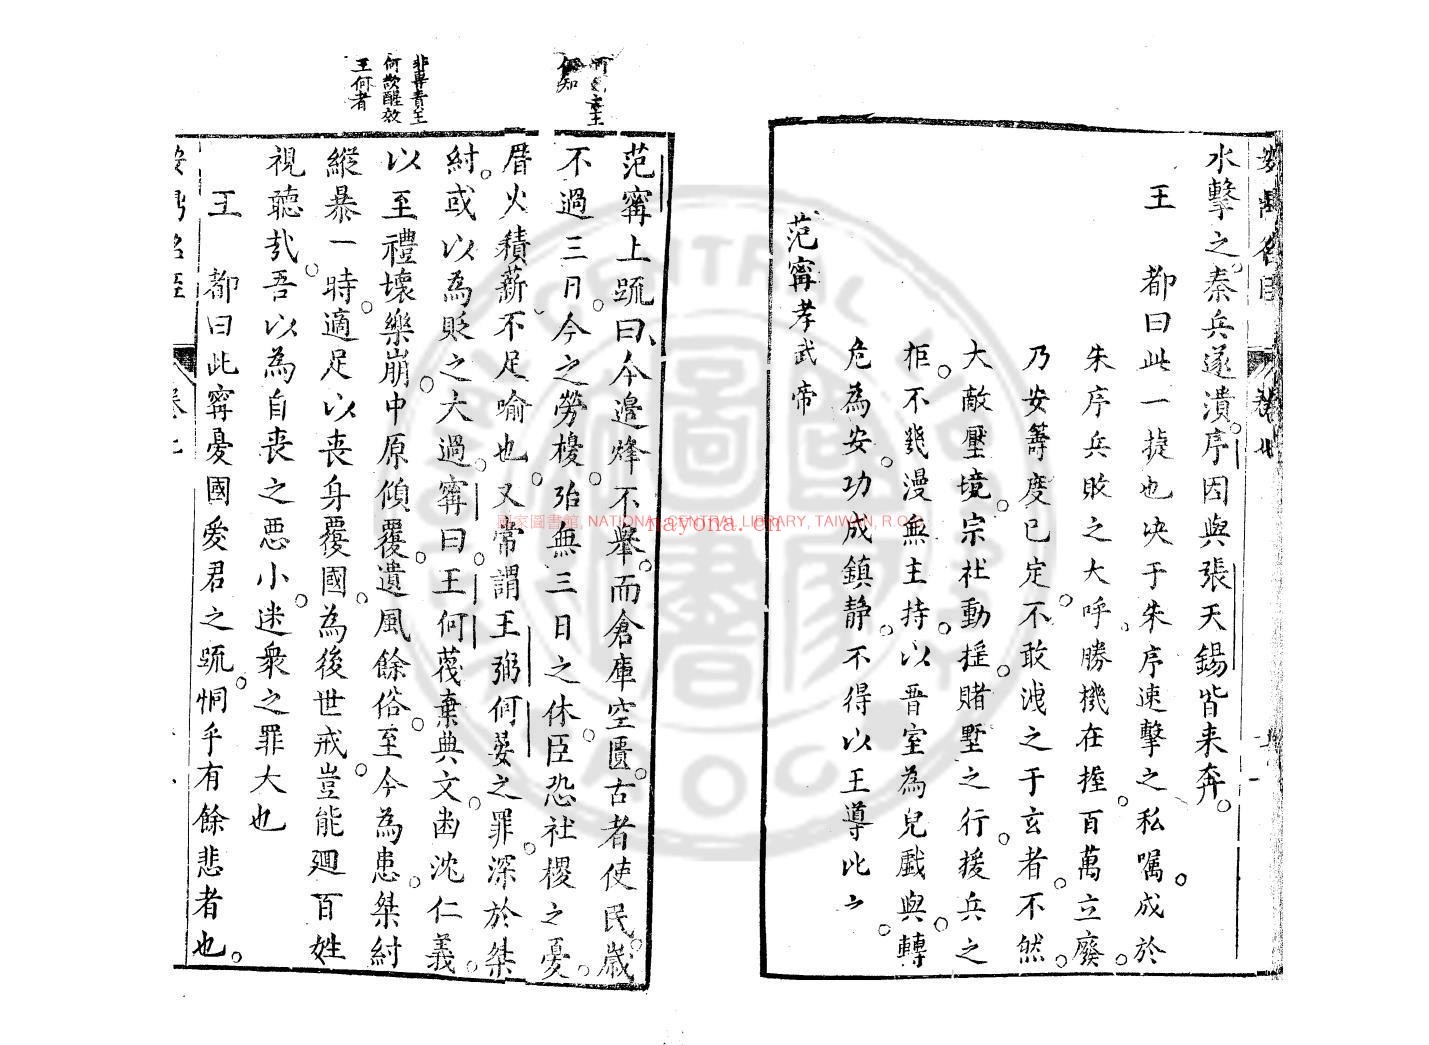 水擊之秦兵遂潰序因與張天錫皆来奔
王　都曰此一捷也决于朱序速擊之私嘱成於
朱序兵敗之大呼勝機在握百萬立廢
乃安籌度已定不敢洩之于玄者不然
大敵壓境宗社動摇賭墅之行援兵之
拒不幾漫無主持以晋室為兒戲與轉
危為安功成鎮静不得以王導比之
范甯孝武帝
范甯上疏曰今邊烽不舉而倉庫空匱古者使民歲
不過三日今之勞擾殆無三日之休臣恐社稷之憂
厝火積薪不足喻也又常謂王弼何晏之罪深於桀
紂或以為貶之太過甯曰王何蔑棄典文幽沈仁義
以至禮壞樂崩中原傾覆遺風餘俗至今為患桀紂
縱暴一時適足以丧身覆國為後世戒豈能廻百姓
視聽哉吾以為自丧之惡小迷衆之罪大也
王　都曰此甯憂國爱君之疏恫乎有餘悲者也
非專責王
何欲醒效
王何者
卷七
國家圖書館, NATIONAL CENTRAL LIBRARY, TAIWAN, R.O.C
nayona.cn